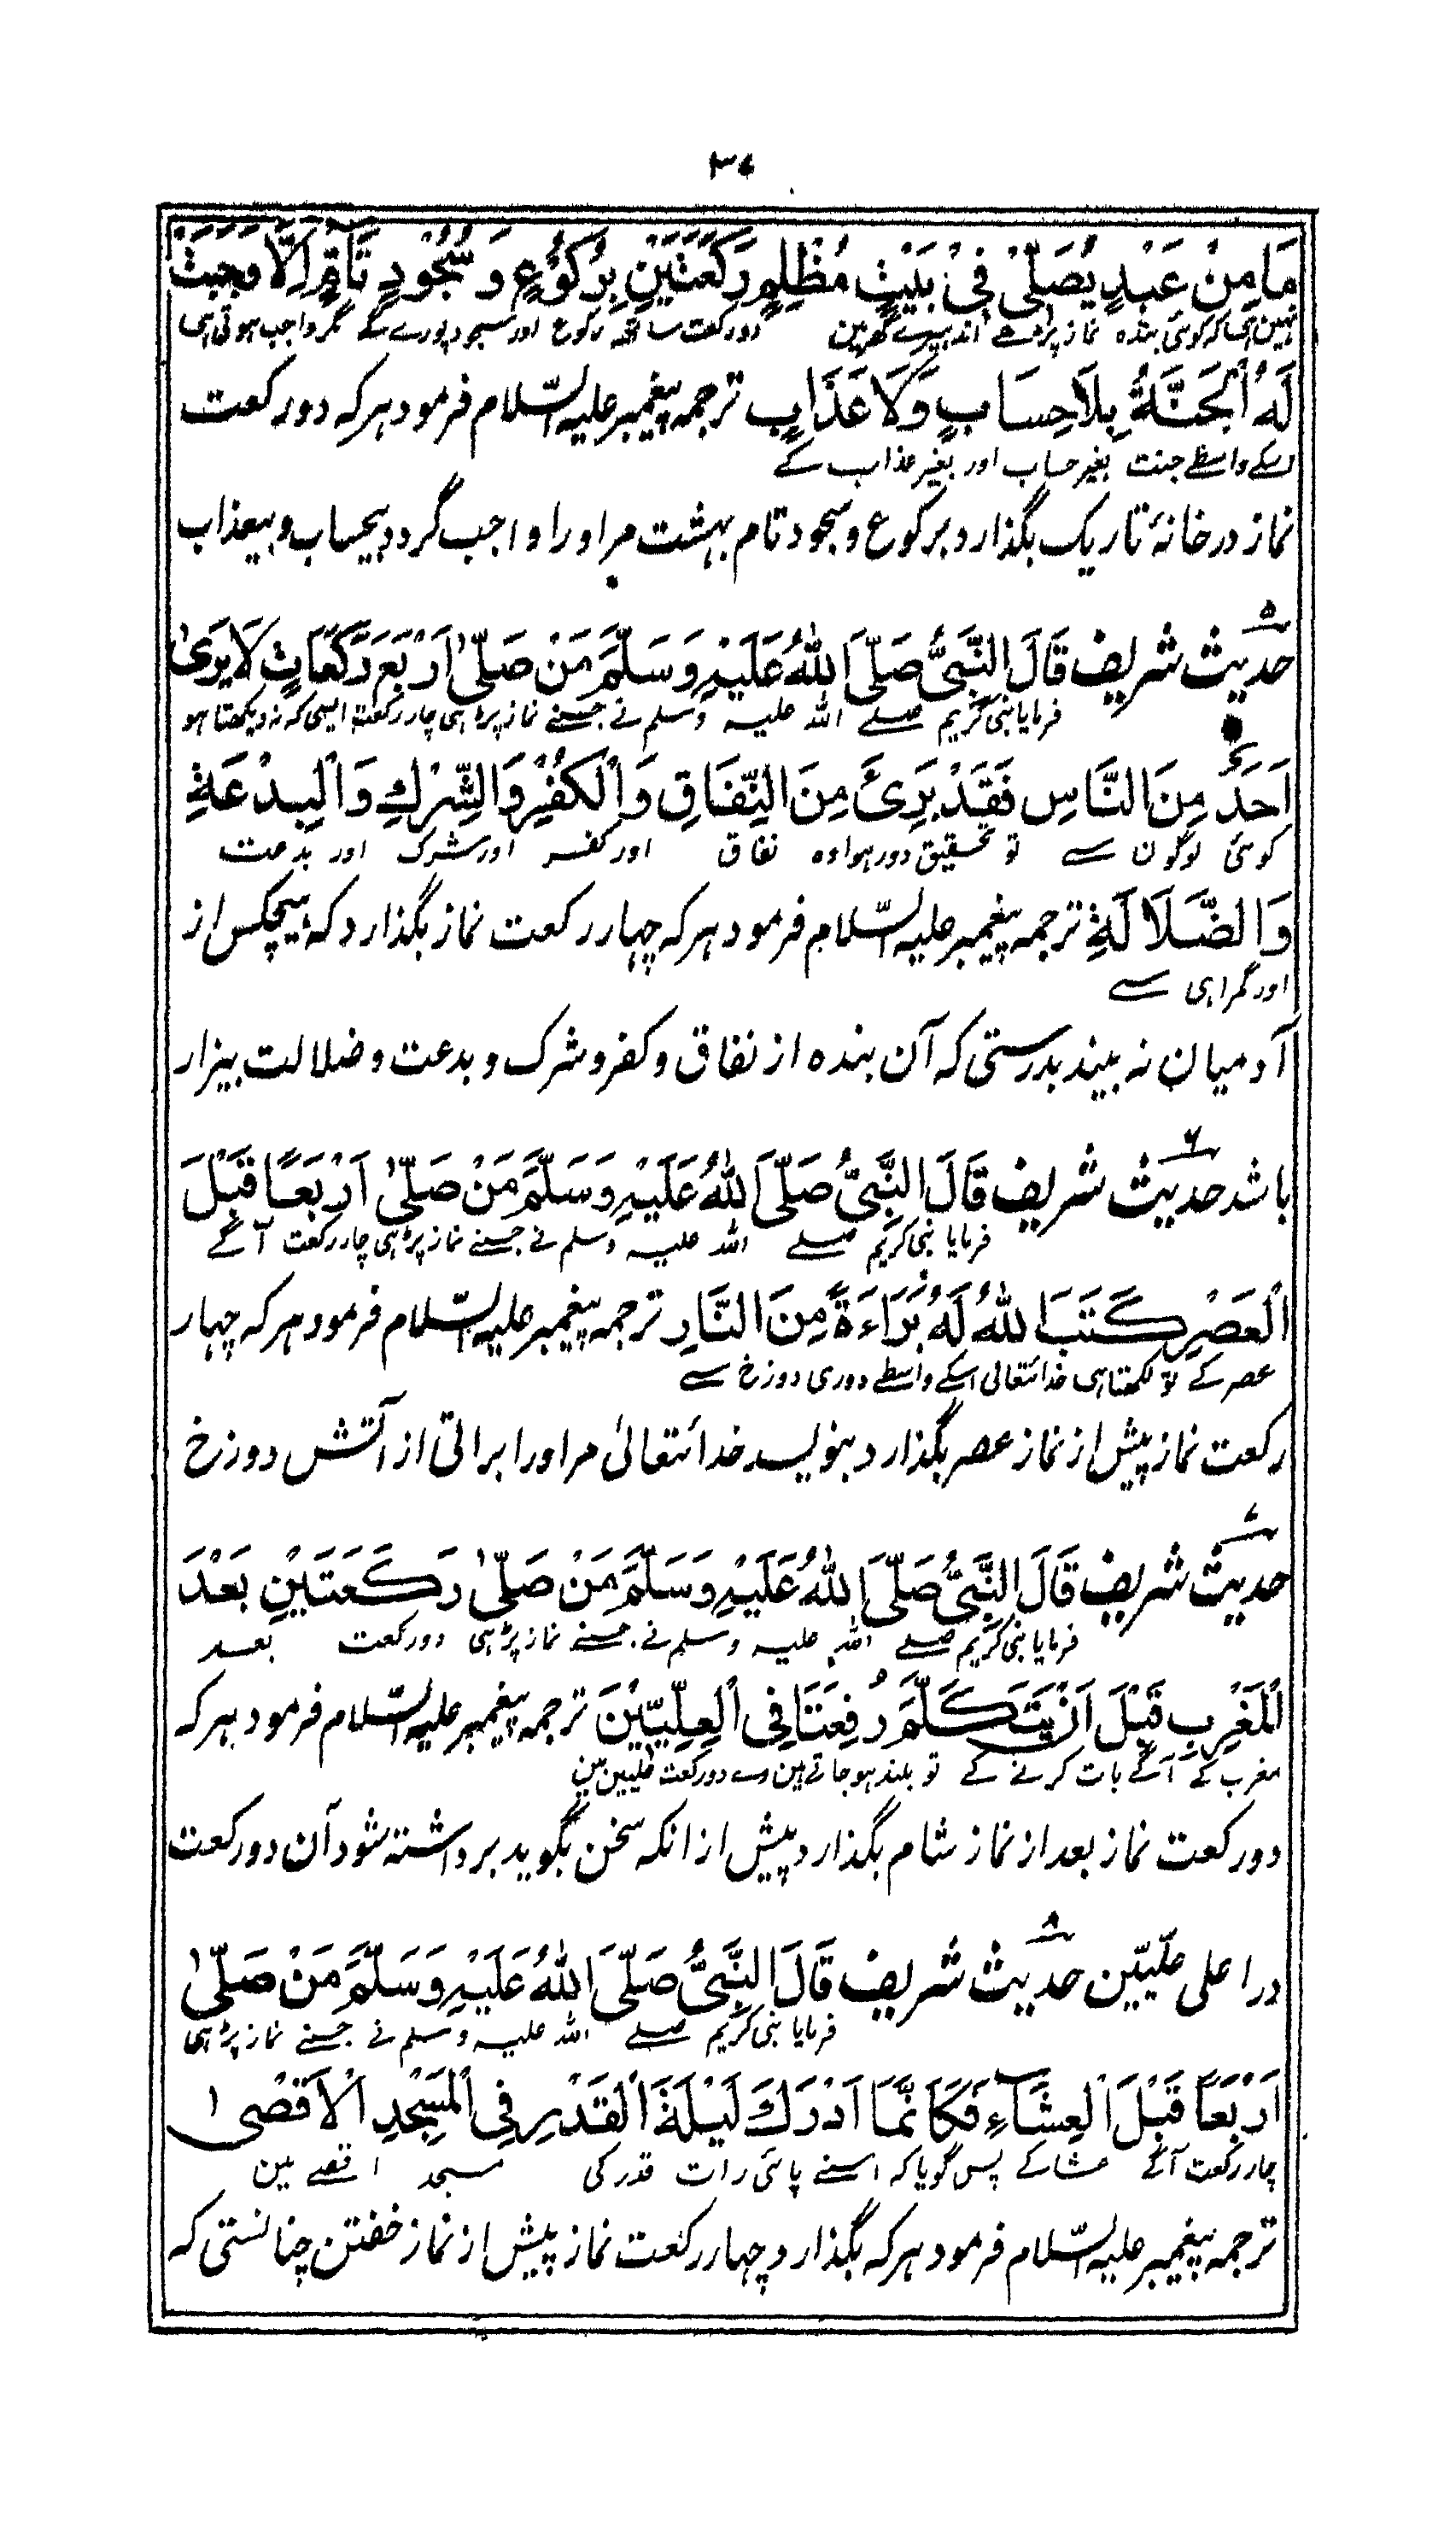 ۳۷
مَا مِنْ عَبْدٍ يُصَلِّيْ فِيْ بَيْتٍ مُظْلِمٍ رَكْعَتَيْنِ بِرُكُوْعٍ وَسُجُوْدٍ تَآمٍّ اِلَّا وَجَبَتْ
نہین ہی کہ کوئی بندہ نماز پڑھے اندہیرے گھرمین دو رکعت ساتھ رکوع اور سجود پورے کے مگر واجب ہوتی ہی
لَهُ الْجَنَّةُ بِلَاحِسَابٍ وَّلَا عَذَابٍ ترجمہ پیغمبر علیہ السّلام فرمود ہر کہ دو رکعت
اسکے واسطے جنت بغیر حساب اور بغیر عذاب کے
نماز در خانۂ تاریک بگذارد برکوع و سجود تمام بہشت مر او را واجب گردد بیحساب و بیعذاب
حدیث ۵ شریف قَالَ النَّبِيُّ صَلَّى اللّٰهُ عَلَيْهِ وَسَلَّمَ مَنْ صَلّٰى اَرْبَعَ رَكَعَاتٍ لَا يَرٰى
فرمایا نبی کریم صلے اللہ علیہ وسلم نے جسنے نماز پڑہی چار رکعت ایسی کہ نہ دیکھتا ہو
اَحَدٌ مِنَ النَّاسِ فَقَدْ بَرِئَ مِنَ النِّفَاقِ وَالْكُفْرِ وَالشِّرْكِ وَالْبِدْعَةِ
کوئی لوگون سے تو تحقیق دور ہوا وہ نفاق اور کفر اور شرک اور بدعت
وَالضَّلَالَةِ ترجمہ پیغمبر علیہ السّلام فرمود ہر کہ چہار رکعت نماز بگذارد کہ ہیچکس از
اور گمراہی سے
آدمیان نہ بیند بدرستی کہ آن بندہ از نفاق و کفر و شرک و بدعت و ضلالت بیزار
باشد حدیث ۶ شریف قَالَ النَّبِيُّ صَلَّى اللّٰهُ عَلَيْهِ وَسَلَّمَ مَنْ صَلّٰى اَرْبَعًا قَبْلَ
فرمایا نبی کریم صلے اللہ علیہ وسلم نے جسنے نماز پڑہی چار رکعت آگے
الْعَصْرِ كَتَبَ اللّٰهُ لَهُ بَرَاءَةً مِنَ النَّارِ ترجمہ پیغمبر علیہ السّلام فرمود ہر کہ چہار
عصر کے تو لکھتا ہی خدائتعالی اسکے واسطے دوری دوزخ سے
رکعت نماز پیش از نماز عصر بگذارد بنویسد خدائتعالیٰ مر اورا براتی از آتش دوزخ
حدیث ۷ شریف قَالَ النَّبِيُّ صَلَّى اللّٰهُ عَلَيْهِ وَسَلَّمَ مَنْ صَلّٰى رَكْعَتَيْنِ بَعْدَ
فرمایا نبی کریم صلے اللہ علیہ وسلم نے جسنے نماز پڑہی دو رکعت بعد
الْمَغْرِبِ قَبْلَ اَنْ يَتَكَلَّمَ رُفِعَتَا فِى الْعِلِّيِّيْنَ ترجمہ پیغمبر علیہ السّلام فرمود ہر کہ
مغرب کے آگے بات کرنے کے تو بلند ہوجاتے ہین وے دو رکعت علیین مین
دو رکعت نماز بعد از نماز شام بگذارد پیش از انکہ سخن بگوید برداشتہ شود آن دو رکعت
در اعلی علّیین حدیث ۸ شریف قَالَ النَّبِيُّ صَلَّى اللّٰهُ عَلَيْهِ وَسَلَّمَ مَنْ صَلّٰى
فرمایا نبی کریم صلے اللہ علیہ وسلم نے جسنے نماز پڑہی
اَرْبَعًا قَبْلَ الْعِشَاءِ فَكَاَنَّمَا اَدْرَكَ لَيْلَةَ الْقَدْرِ فِى الْمَسْجِدِ الْاَقْصٰى
چار رکعت آگے عشا کے پس گویا کہ اسنے پائی رات قدر کی مسجد اقصے مین
ترجمہ پیغمبر علیہ السّلام فرمود ہر کہ بگذارد چہار رکعت نماز پیش از نماز خفتن چنانستی کہ